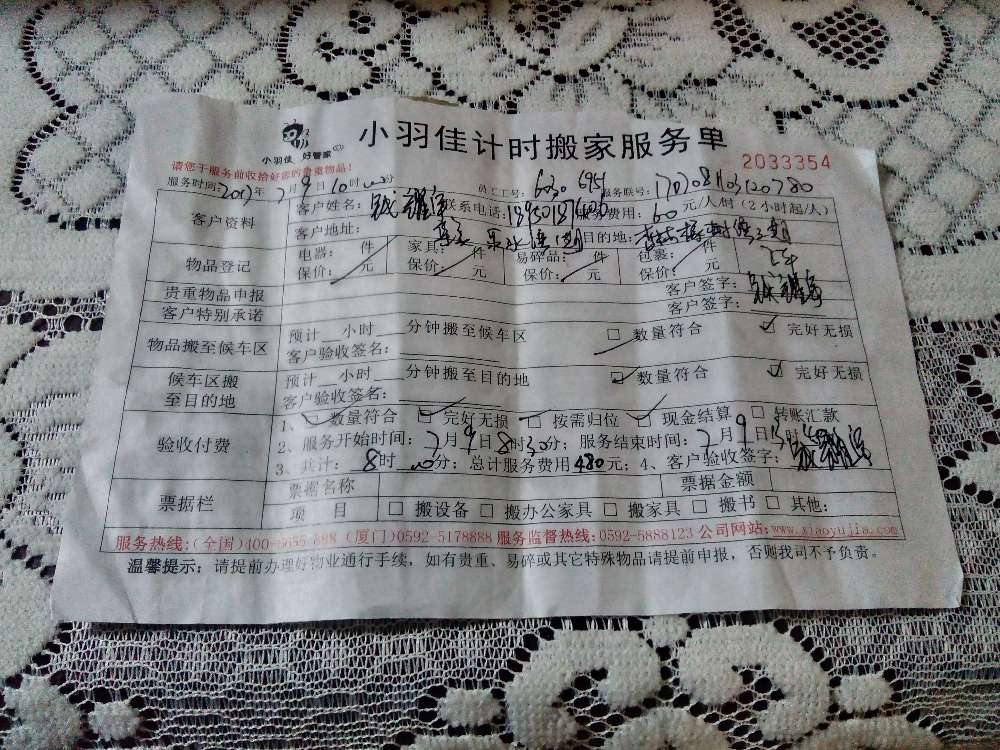 小羽佳 好管家
小羽佳计时搬家服务单
2033354
请您于服务前收拾好您的贵重物品!
服务时间:2017年7月9日10时00分 员工工号:6230 6951 服务联号:1707081103120780
客户资料 客户姓名: 联系电话: 服务费用:60元/人/时(2小时起/人)
客户地址: 目的地:
物品登记 电器: 件 家具: 件 易碎品: 件 包裹: 件
保价: 元 保价: 元 保价: 元 保价: 元
贵重物品申报 客户签字:
客户特别承诺 客户签字:
物品搬至候车区 预计__小时___分钟搬至候车区 □ 数量符合 ☑ 完好无损
客户验收签名:
候车区搬至目的地 预计__小时___分钟搬至目的地 ☑ 数量符合 ☑ 完好无损
客户验收签名:
验收付费 1、☑ 数量符合 ☑ 完好无损 ☑ 按需归位 ☑ 现金结算 □ 转账汇款
2、服务开始时间:7月9日8时30分;服务结束时间:7月9日
3、共计:8时00分;总计服务费用480元;4、客户验收签字:
票据栏 票据名称 票据金额
项 目 □ 搬设备 □ 搬办公家具 □ 搬家具 □ 搬书 □ 其他:
服务热线:(全国)400-8655-888 (厦门)0592-5178888 服务监督热线:0592-5888123 公司网站:www.xiaoyujia.com
温馨提示:请提前办理好物业通行手续,如有贵重、易碎或其它特殊物品请提前申报,否则我司不予负责。